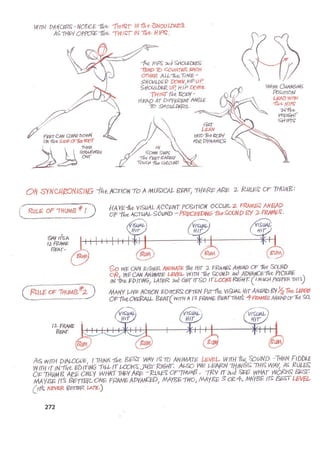 WITH DANCERS - NOTICE the TWIST IN the SHOULDERS
AS THEY OPPOSE the TWIST IN the HIPS.
The HIPS and SHOULDERS
TEND TO COUNTER EACH
OTHER ALL the TIME -
SHOULDER DOWN, HIP UP
SHOULDER UP, HIP DOWN
TWIST the BODY -
HEAD AT DIFFERENT ANGLE
TO SHOULDERS.
WHEN CHANGING
POSITION
LEAD WITH
the HIPS
IN the
WEIGHT
SHIFTS
FEET CAN COME DOWN
ON the SIDE OF the FEET
THEN
STRAIGHTEN
OUT
IN
SOME STEPS
The FEET BARELY
TOUCH the GROUND
GET
LEAN
INTO the BODY
FOR DYNAMICS
ON SYNCHRONISING the ACTION TO A MUSICAL BEAT, THERE ARE 2 RULES OF THUMB:
RULE OF THUMB #1
HAVE the VISUAL ACCENT POSITION OCCUR 2 FRAMES AHEAD
OF the ACTUAL SOUND - PRECEEDING the SOUND BY 2 FRAMES.
VISUAL HIT
VISUAL HIT
VISUAL HIT
SAY IT'S A
12 FRAME
BEAT -
BUM
BUM
BUM
BUM
SO WE CAN EITHER ANIMATE the HIT 2 FRAMES AHEAD OF the SOUND
OR, WE CAN ANIMATE LEVEL WITH the SOUND and ADVANCE the PICTURE
IN the EDITING, LATER and GET IT SO IT LOOKS RIGHT. (I MUCH PREFER THIS)
RULE OF THUMB #2
MANY LIVE ACTION EDITORS OFTEN PUT the VISUAL HIT AHEAD BY 1/3 the LENGTH
OF the OVERALL BEAT (WITH A 12 FRAME BEAT THAT'S 4 FRAMES AHEAD OF the SOUND
VISUAL HIT
VISUAL HIT
VISUAL HIT
12 FRAME
BEAT
BUM
BUM
BUM
BUM
AS WITH DIALOGUE, I THINK the BEST WAY IS TO ANIMATE LEVEL WITH the SOUND - THEN FIDDLE
WITH IT IN the EDITING TILL IT LOOKS JUST RIGHT. ALSO WE LEARN THINGS THIS WAY, AS RULES
OF THUMB ARE ONLY WHAT THEY ARE - RULES OF THUMB. TRY IT and SEE WHAT WORKS BEST.
MAYBE IT'S BETTER ONE FRAME ADVANCED, MAYBE TWO, MAYBE 3 OR 4. MAYBE IT'S BEST LEVEL
(IT'S NEVER BETTER LATE.)
272